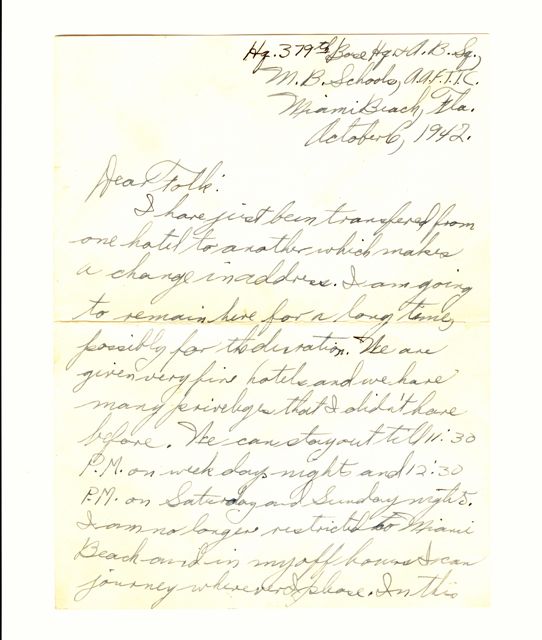 Hq. 379th Base Hq & A. B. Sq.,
M. B. Schools, A.A.F.T.T.C.
Miami Beach, Fla.
October 6, 1942.
Dear Folk:
I have just been transfered from
one hotel to another which makes
a change in address. I am going
to remain here for a long time,
possibly for the duration. We are
given very fine hotels and we have
many priveleges that I didn't have
before. We can stay out till 11:30
P.M. on week days nights and 12:30
P.M. on Saturday and Sunday nights.
I am no longer restricted to Miami
Beach and in my off hours I can
journey wherever I please. In this